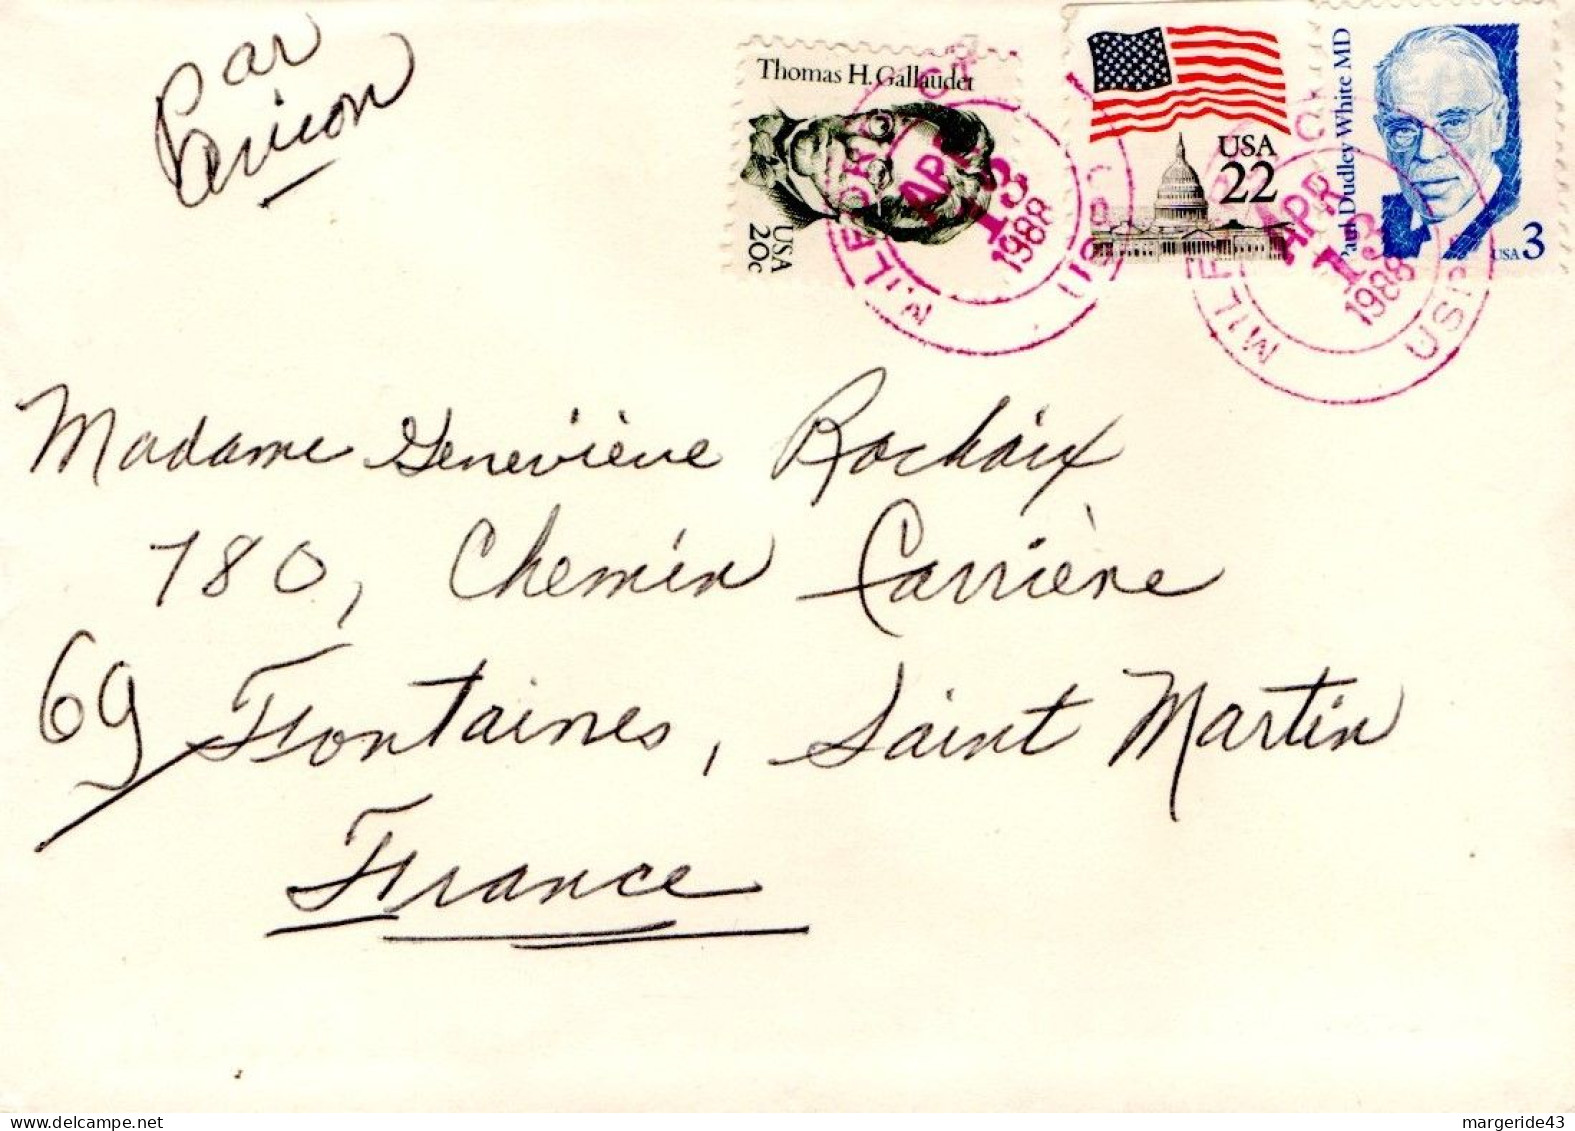 Par
Avion
Thomas H. Gallaudet
USA
20c
USA
22
Paul Dudley White MD
USA 3
APR
13
1988
USPO
MILFORD
APR
13
1988
Madame Geneviève Rochaix
780, Chemin Carrière
69 Fontaines, Saint Martin
France
delcampe.net
margeride43